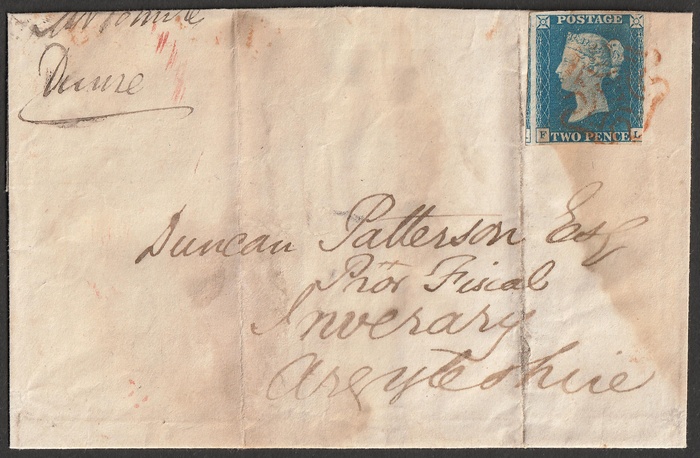 Dunse
POSTAGE
F TWO PENCE L
Duncan Patterson Esq
Pror Fiscal
Inverary
Argyleshire